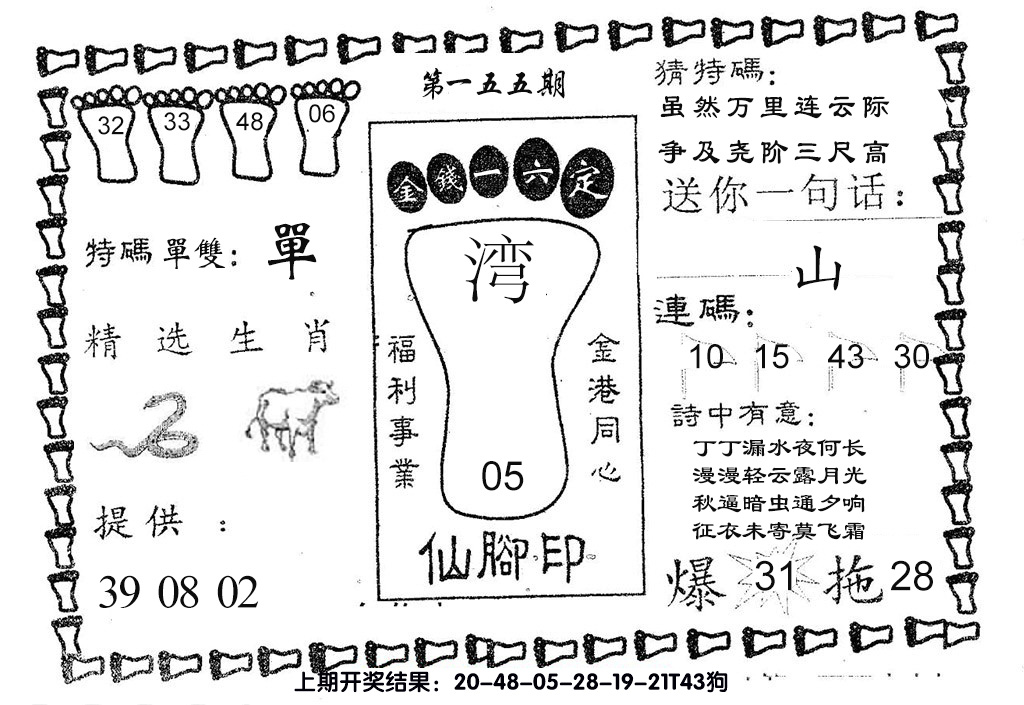 第一五五期
32 33 48 06
特碼單雙: 單
精选生肖
提供:
39 08 02
金錢一六定
湾
福利事業
金港同心
05
仙腳印
猜特碼:
虽然万里连云际
争及尧阶三尺高
送你一句话:
山
連碼:
10 15 43 30
詩中有意:
丁丁漏水夜何长
漫漫轻云露月光
秋逼暗虫通夕响
征衣未寄莫飞霜
爆 31 拖 28
上期开奖结果：20-48-05-28-19-21T43狗